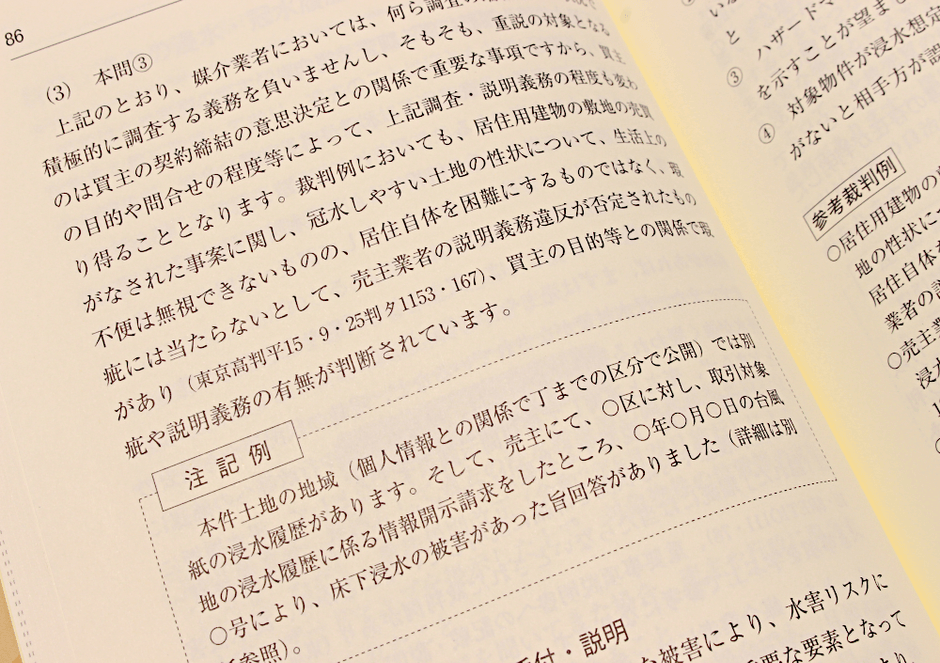 86
(3) 本問③
上記のとおり、媒介業者においては、何ら調査の
積極的に調査する義務を負いませんし、そもそも、重説の対象となる
のは買主の契約締結の意思決定との関係で重要な事項ですから、買主
の目的や問合せの程度等によって、上記調査・説明義務の程度も変わ
り得ることとなります。裁判例においても、居住用建物の敷地の売買
がなされた事案に関し、冠水しやすい土地の性状について、生活上の
不便は無視できないものの、居住自体を困難にするものではなく、瑕
疵には当たらないとして、売主業者の説明義務違反が否定されたもの
があり（東京高判平15・9・25判タ1153・167）、買主の目的等との関係で瑕
疵や説明義務の有無が判断されています。
注記例
本件土地の地域（個人情報との関係で丁までの区分で公開）では別
紙の浸水履歴があります。そして、売主にて、○区に対し、取引対象
地の浸水履歴に係る情報開示請求をしたところ、○年○月○日の台風
○号により、床下浸水の被害があった旨回答がありました（詳細は別
参照）。
付・説明
被害により、水害リスクに
要な要素となって
と
ハザードマ
を示すことが望ま
③
対象物件が浸水想定
がないと相手方が誤
④
参考裁判例
○居住用建物の
地の性状に
居住自体を
業者の説
○売主業
浸水